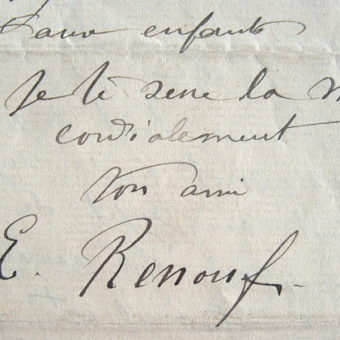 enfants
Je te serre la
cordialement
ton ami
E. Renouf.